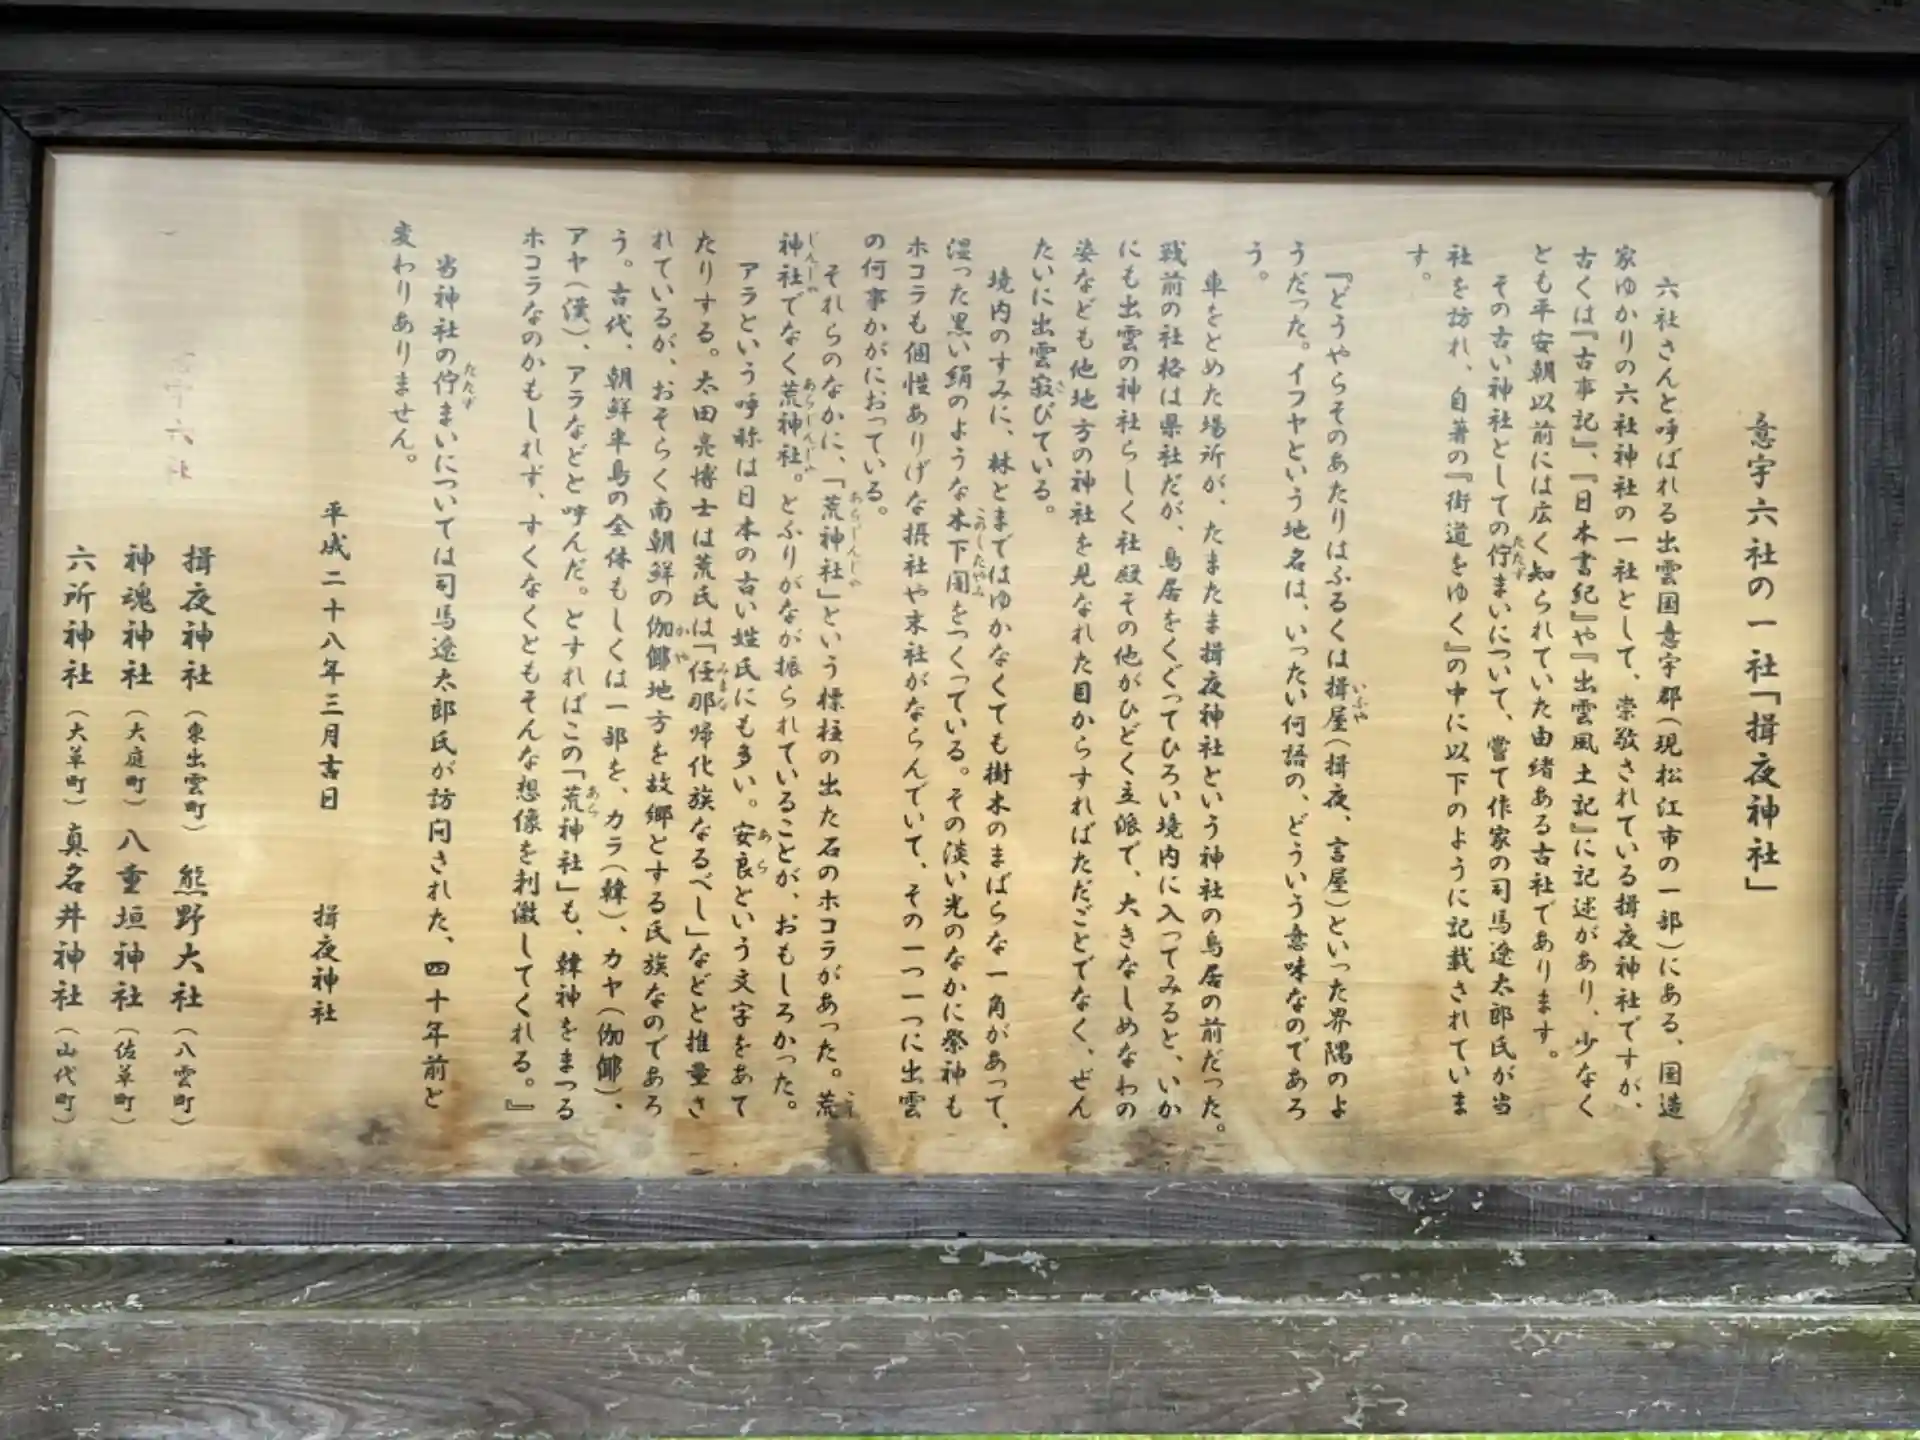 意宇六社の一社「揖夜神社」
六社さんと呼ばれる出雲国意宇郡(現松江市の一部)にある、国造
家ゆかりの六社神社の一社として、崇敬されている揖夜神社ですが、
古くは『古事記』、『日本書紀』や『出雲風土記』に記述があり、少なく
とも平安朝以前には広く知られていた由緒ある古社であります。
その古い神社としての佇まいについて、嘗て作家の司馬遼太郎氏が当
社を訪れ、自著の『街道をゆく』の中に以下のように記載されていま
す。
『どうやらそのあたりはふるくは揖屋(揖夜、言屋)といった界隈のよ
うだった。イフヤという地名は、いったい何語の、どういう意味なのであろ
う。
車をとめた場所が、たまたま揖夜神社という神社の鳥居の前だった。
戦前の社格は県社だが、鳥居をくぐってひろい境内に入ってみると、いか
にも出雲の神社らしく社殿その他がひどく立派で、大きなしめなわの
姿なども他地方の神社を見なれた目からすればただごとでなく、ぜん
たいに出雲寂びている。
境内のすみに、林とまではゆかなくても樹木のまばらな一角があって、
湿った黒い絹のような木下闇をつくっている。その淡い光のなかに祭神も
ホコラも個性ありげな摂社や末社がならんでいて、その一つ一つに出雲
の何事かがにおっている。
それらのなかに、「荒神社」という標柱の出た石のホコラがあった。荒
神社でなく荒神社。とふりがなが振られていることが、おもしろかった。
アラという呼称は日本の古い姓氏にも多い。安良という文字をあて
たりする。太田亮博士は荒氏は「任那帰化族なるべし」などと推量さ
れているが、おそらく南朝鮮の伽倻地方を故郷とする氏族なのであろ
う。古代、朝鮮半島の全体もしくは一部を、カラ(韓)、カヤ(伽倻)、
アヤ(漢)、アラなどと呼んだ。とすればこの「荒神社」も、韓神をまつる
ホコラなのかもしれず、すくなくともそんな想像を刺激してくれる。』
当神社の佇まいについては司馬遼太郎氏が訪問された、四十年前と
変わりありません。
平成二十八年三月吉日 揖夜神社
意宇六社
揖夜神社(東出雲町) 熊野大社(八雲町)
神魂神社(大庭町) 八重垣神社(佐草町)
六所神社(大草町) 真名井神社(山代町)